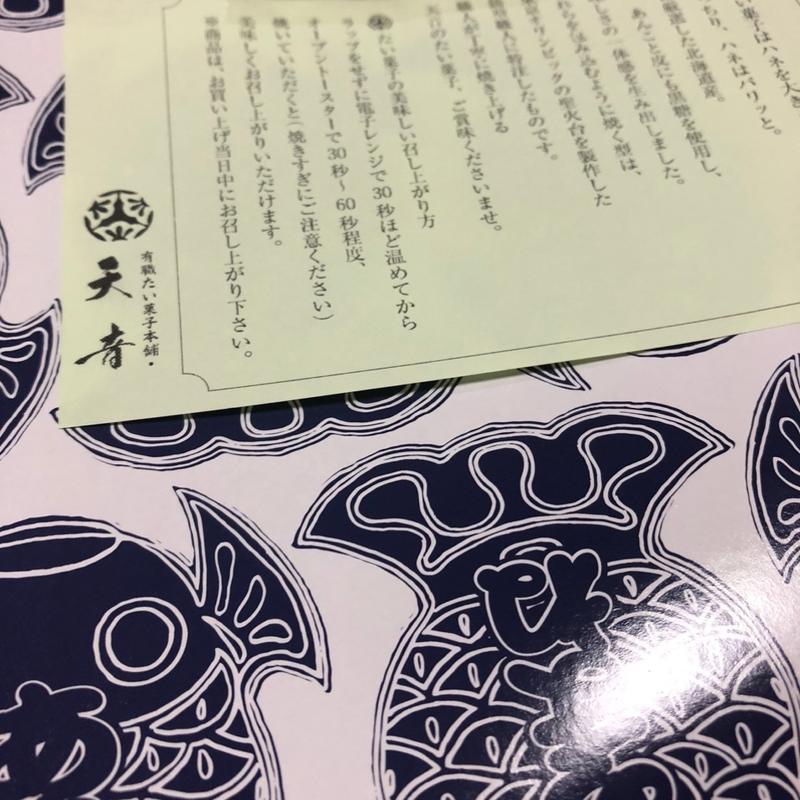 い菓子はハネを大き
あり、ハネはパリッと。
厳選した北海道産。
あんこと皮にも黒糖を使用し、
しさの一体感を生み出しました。
れらを包み込むように焼く型は、
オリンピックの聖火台を製作した
職人に特注したものです。
職人が丁寧に焼き上げる
天音のたい菓子、ご賞味くださいませ。
たい菓子の美味しい召し上がり方
ラップをせずに電子レンジで30秒ほど温めてから
オーブントースターで30秒~60秒程度、
焼いていただくと(焼きすぎにご注意ください)
美味しくお召し上がりいただけます。
※商品は、お買い上げ当日中にお召し上がり下さい。
有職たい菓子本舗・
天音
あ